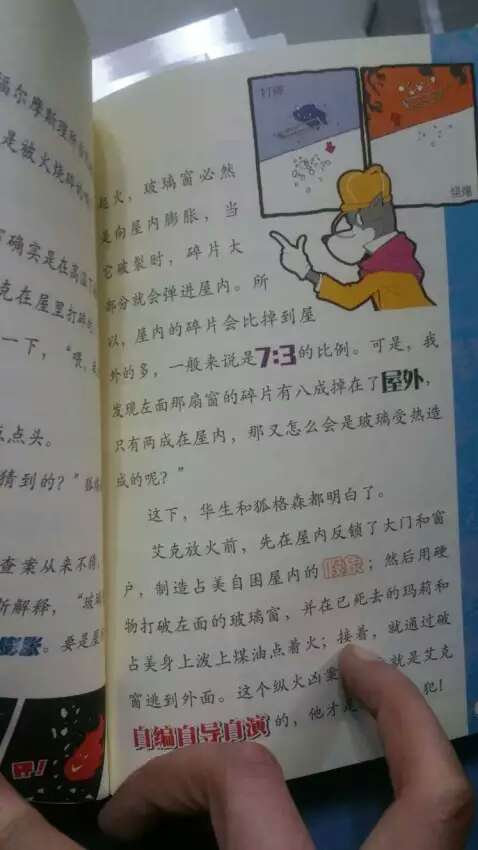 福尔摩斯理所
是被火烧
确实是在高温
克在屋里打碎
一下，“喂，
点点头。
猜到的？”
查案从来不
新解释，“玻
膨胀。要是屋
界！
打碎
烧爆
起火，玻璃窗必然
是向屋内膨胀，当
它破裂时，碎片大
部分就会弹进屋内。所
以，屋内的碎片会比掉到屋
外的多，一般来说是7:3的比例。可是，我
发现左面那扇窗的碎片有八成掉在了屋外，
只有两成在屋内，那又怎么会是玻璃受热造
成的呢？”
这下，华生和狐格森都明白了。
艾克放火前，先在屋内反锁了大门和窗
户，制造占美自困屋内的假象；然后用硬
物打破左面的玻璃窗，并在已死去的玛莉和
占美身上泼上煤油点着火；接着，就通过破
窗逃到外面。这个纵火凶案 就是艾克
自编自导自演的，他才是 犯！